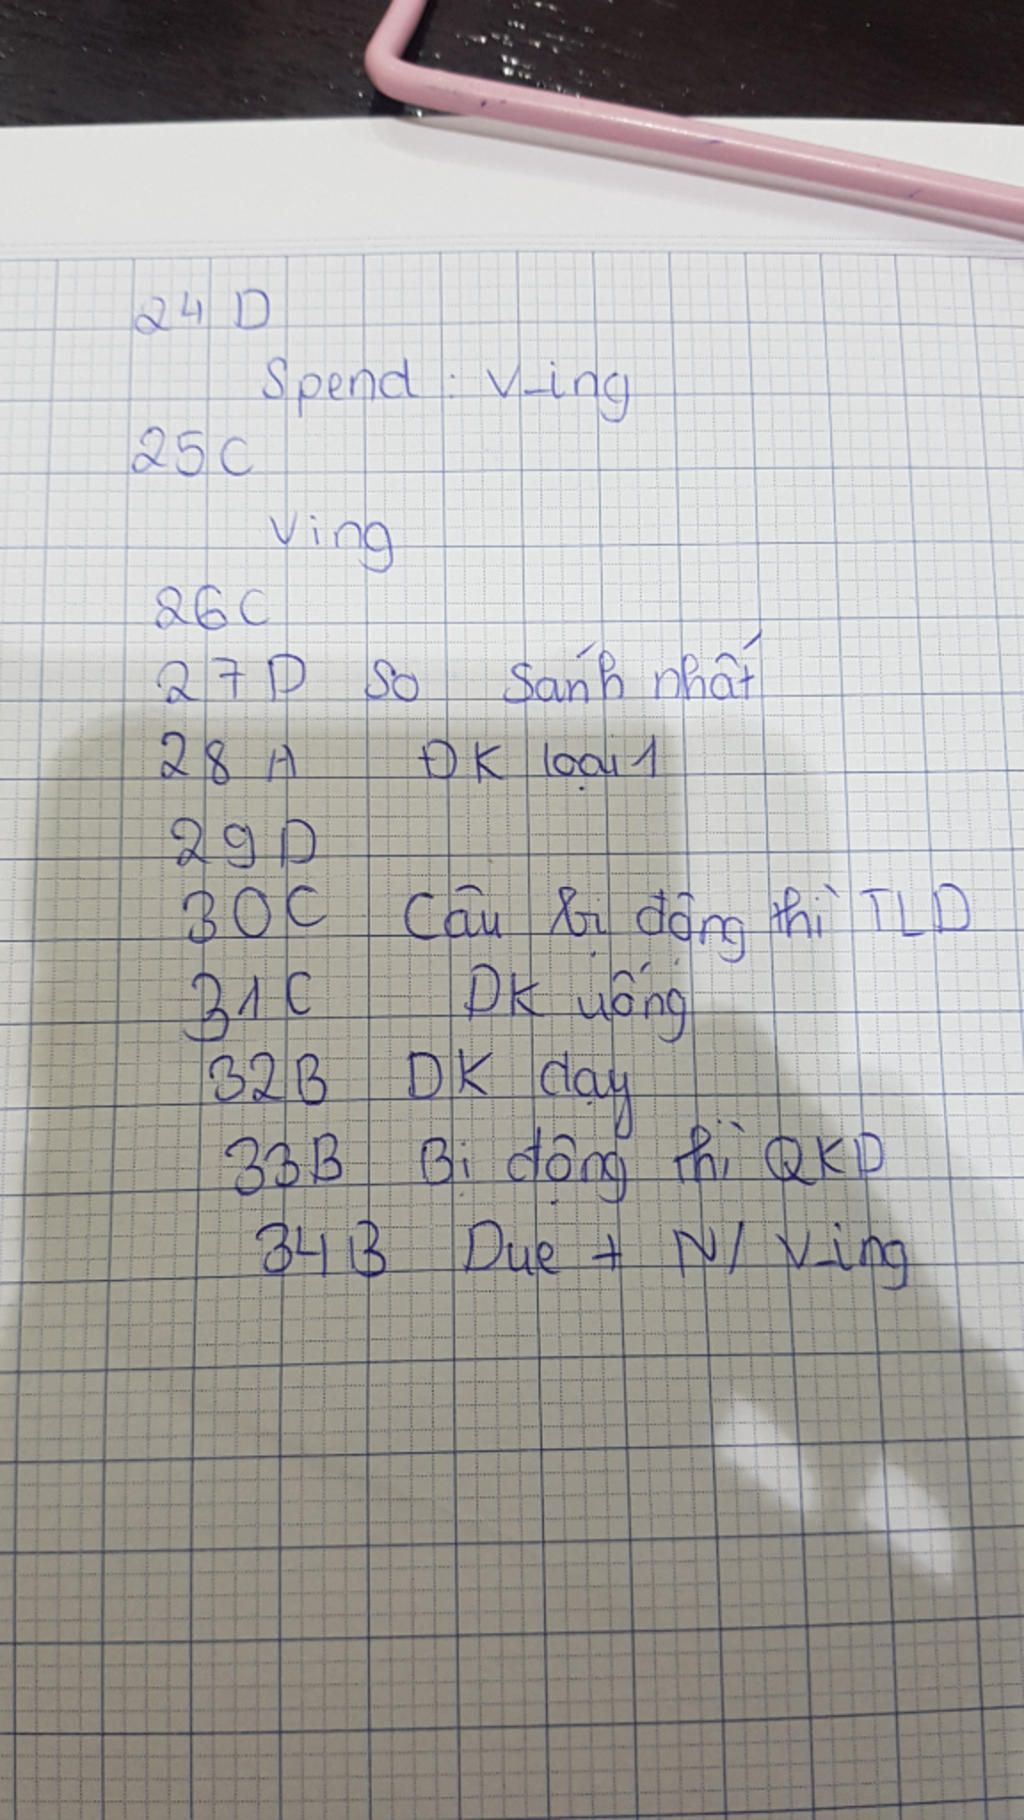 24 D
Spend : V-ing
25 C
Ving
26 C
27 D So Sánh nhất
28 A ĐK loại 1
29 D
30 C Câu bị động thì TLD
31 C DK uống
32 B DK dạy
33 B Bị động thì QKD
34 B Due + N/ V-ing